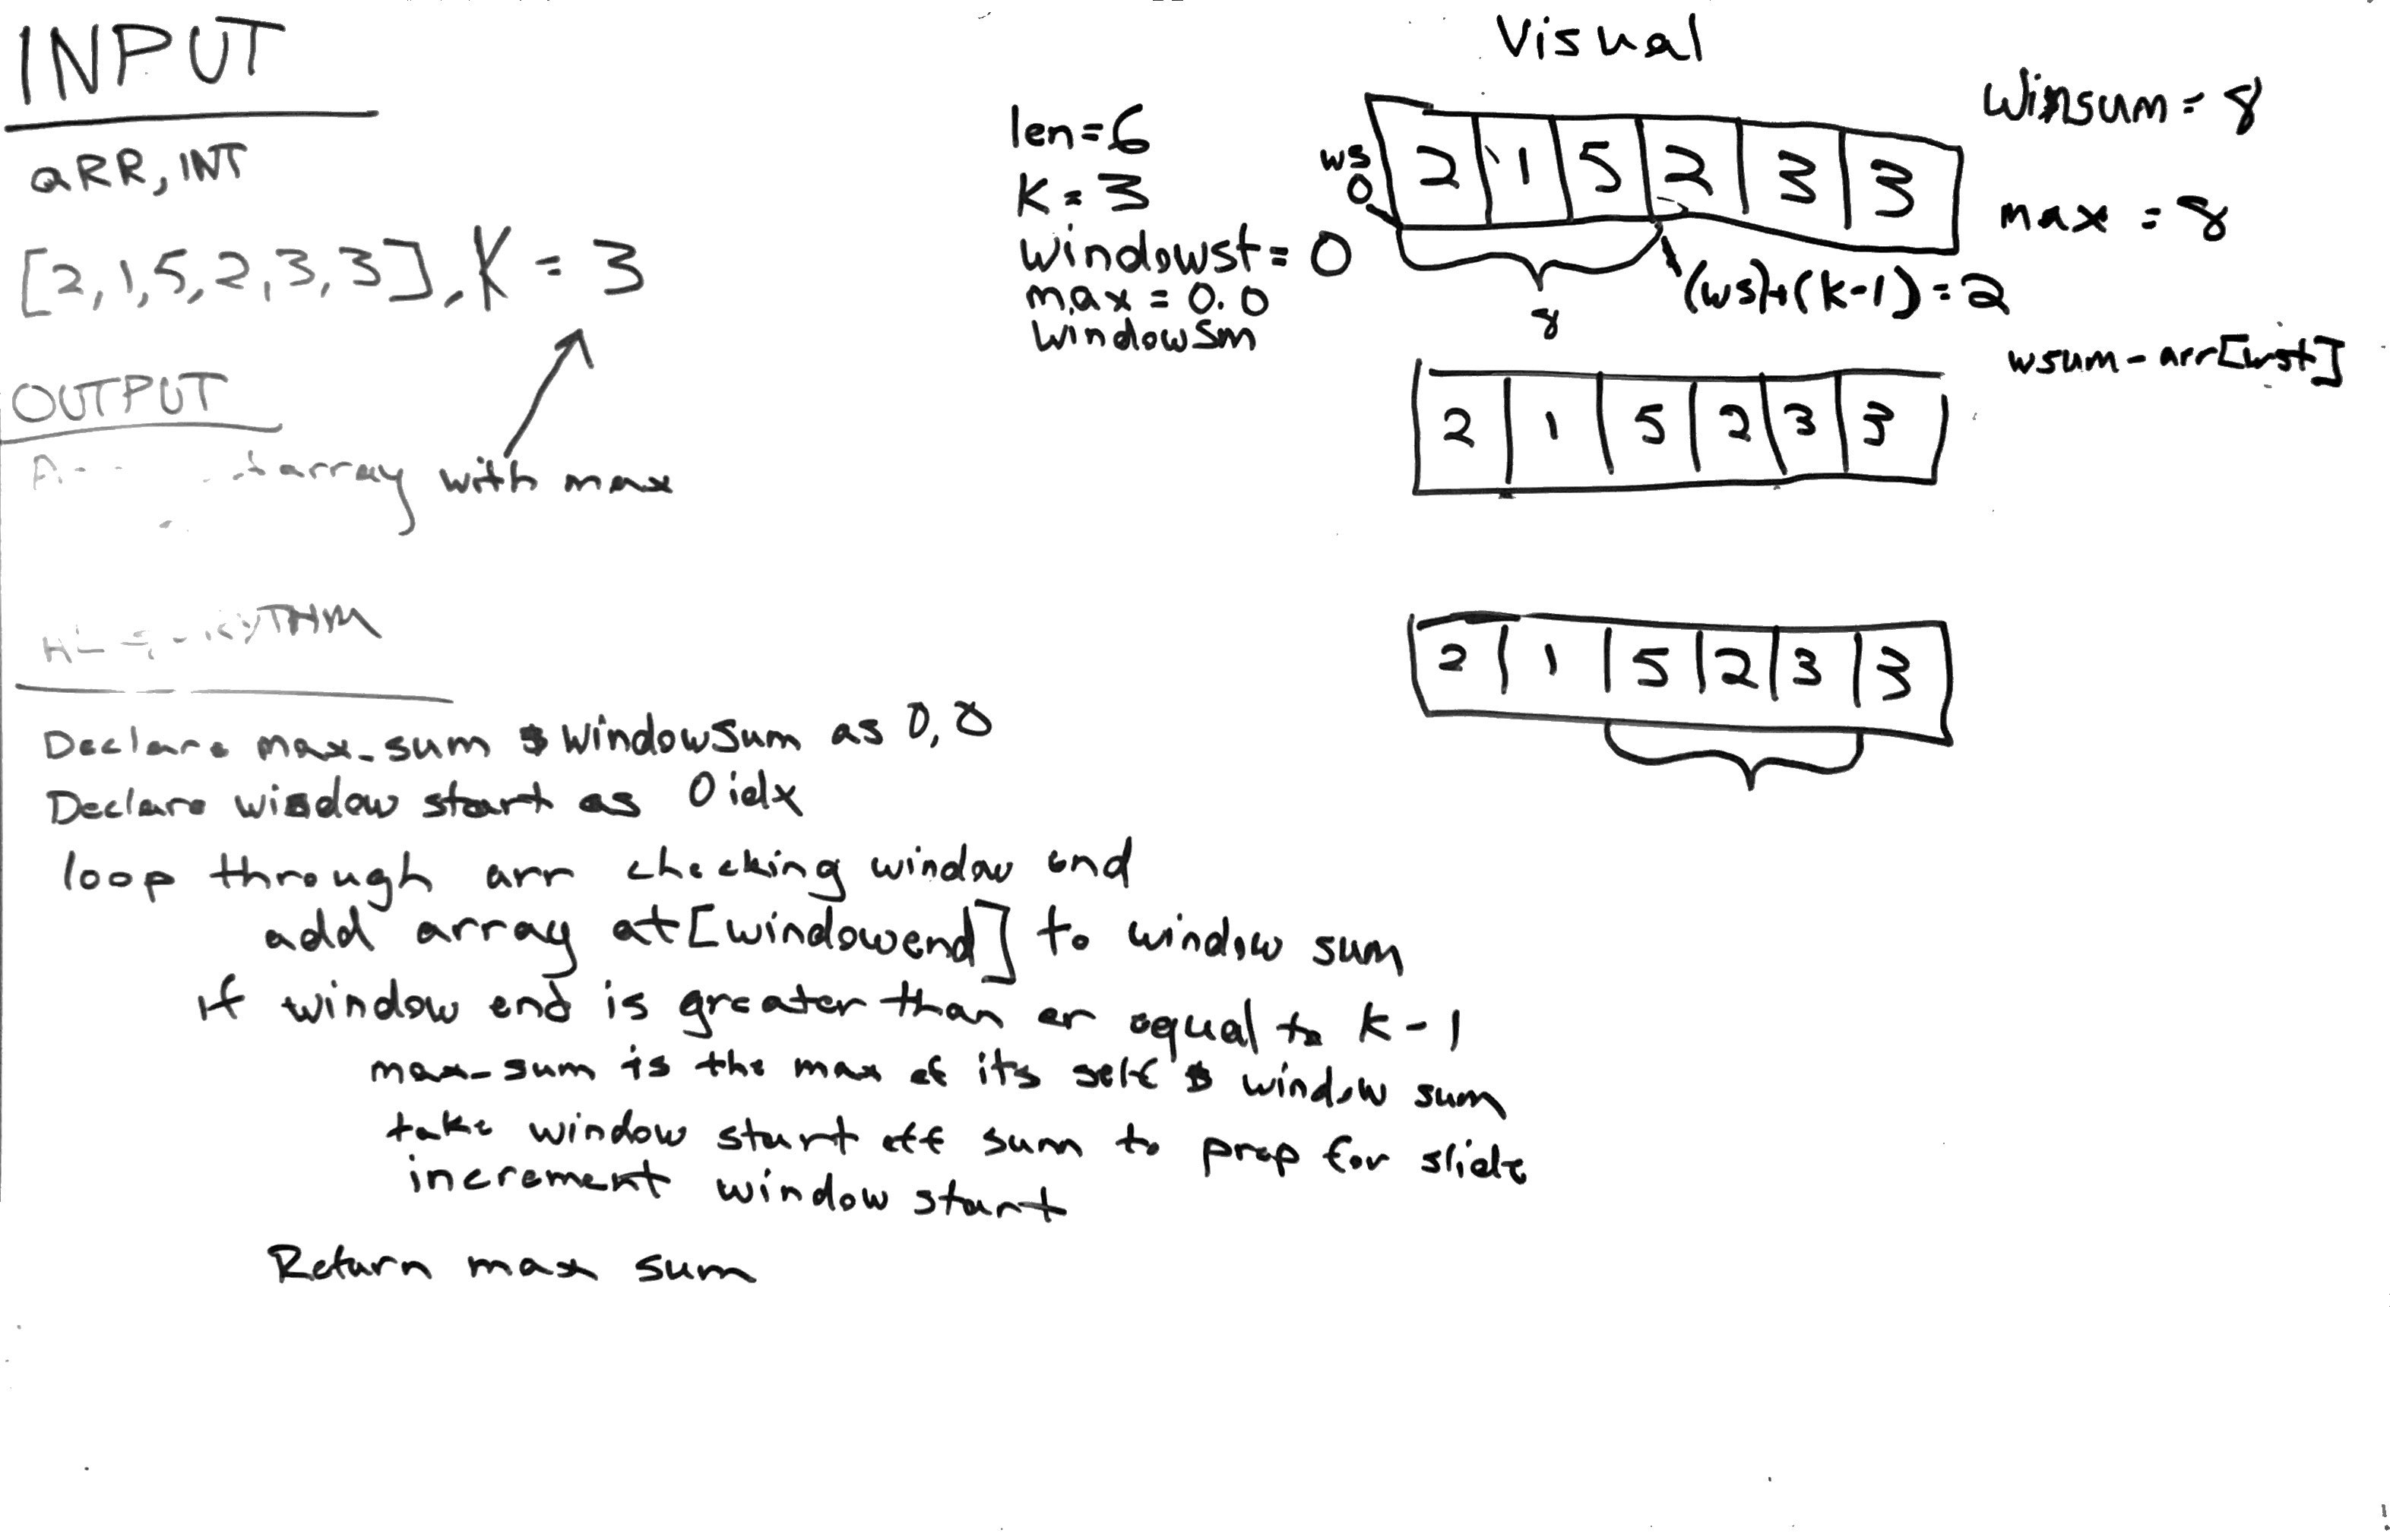 INPUT
aRR, INT
[2,1,5,2,3,3], K = 3
OUTPUT
array with max
Declare max_sum & windowsum as 0,0
Declare window start as 0 idx
loop through arr checking window end
add array at [windowend] to window sum
if window end is greater than or equal to k-1
max_sum is the max of its self & window sum
take window start off sum to prep for slide
increment window start
Return max sum
Visual
len=6
K=3
windowst=0
max=0.0
windowSm
ws
0
2 1 5 2 3 3
8
(ws)+(k-1)=2
winsum=8
max=8
wsum-arr[wst]
2 1 5 2 3 3
2 1 5 2 3 3